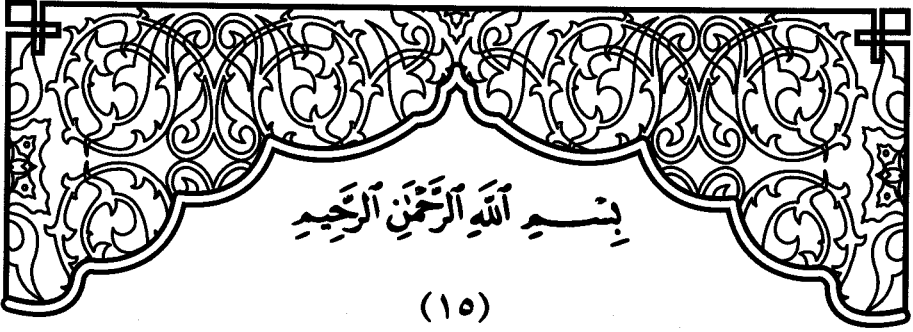 بِسْمِ ٱللَّهِ ٱلرَّحْمَٰنِ ٱلرَّحِيمِ
(١٥)